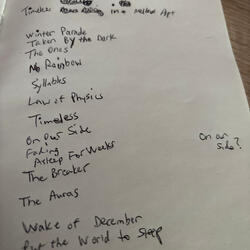 Timeless in a melted Apt
Winter Parade
Taken By the Dark
The Ones
No Rainbow
Syllables
Law of Physics
Timeless
On Our Side
Fading
On our side?
Asleep For Weeks
The Breaker
The Auras
Wake of December
Put the World to Sleep